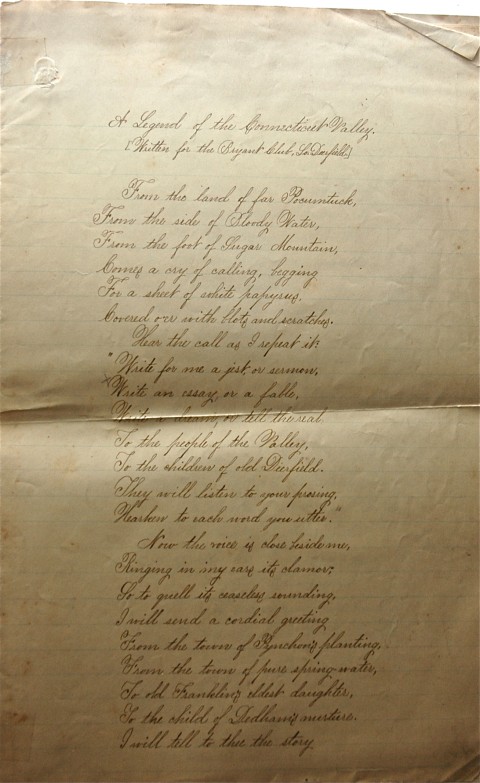 A Legend of the Connecticut Valley.
[Written for the Bryant Club, So. Deerfield.]
From the land of far Pocumtuck,
From the side of Bloody Water,
From the foot of Sugar Mountain,
Comes a cry of calling, begging
For a sheet of white papyrus,
Covered o'er with blots and scratches.
Hear the call as I repeat it:
"Write for me a jest or sermon,
Write an essay, or a fable,
Write a dream, or tell the real
To the people of the Valley,
To the children of old Deerfield.
They will listen to your prosing,
Hearken to each word you utter."
Now the voice is close beside me,
Ringing in my ears its clamor;
So to quell its ceaseless sounding,
I will send a cordial greeting
From the town of Pynchon's planting,
From the town of pure spring-water,
To old Franklin's eldest daughter,
To the child of Dedham's nurture.
I will tell to thee the story